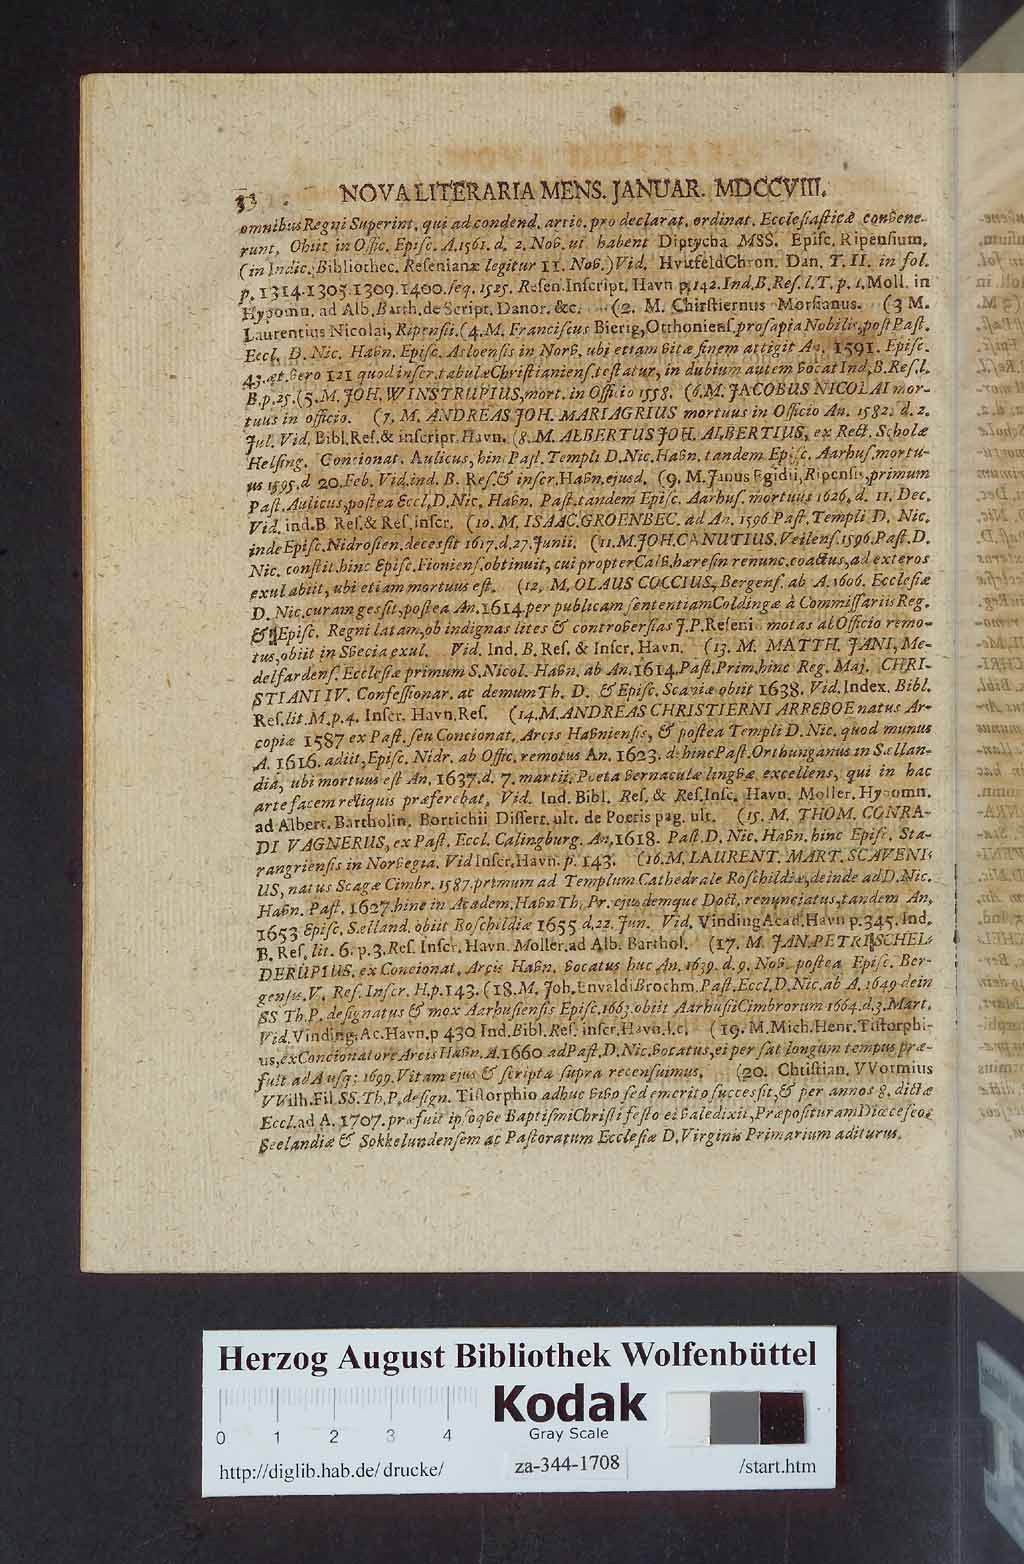 NOVA LITERARIA MENS. JANUAR. MDCCVIII.
omnibus Regni Superint. qui ad condend. artic. pro declarat. ordinat. Ecclesiasticæ convene-
runt, Obiit in Offic. Episc. A. 1561. d. 2. Nov. ut habent Diptycha MSS. Episc. Ripensium.
(in Indic. Bibliothec. Resenianæ legitur 11. Nov.) Vid. Hvitfeld Chron. Dan. T. II. in fol.
p. 1314. 1305. 1309. 1400. seq. 1525. Resen. Inscript. Havn. p. 142. Ind. B. Res. l. T. p. 1. Moll. in
Hypomn. ad Alb. Barth. de Script. Danor. &c. (2. M. Chirstiernus Morsianus. (3 M.
Laurentius Nicolai, Ripensis. (4. M. Franciscus Bierig, Otthoniens. prosapia Nobilis, post Past.
Eccl. D. Nic. Havn. Episc. Asloensis in Norv. ubi etiam vitæ finem attigit An. 1591. Episc.
43. æt. vero 121 quod inscr. tabulæ Christianiens. testatur, in dubium autem vocat Ind. B. Res. l.
B. p. 25. (5. M. JOH. WINSTRUPIUS, mort. in Officio 1558. (6. M. JACOBUS NICOLAI mor-
tuus in officio. (7. M. ANDREAS JOH. MARIAGRIUS mortuus in Officio An. 1582. d. 2.
Jul. Vid. Bibl. Res. & inscript. Havn. (8. M. ALBERTUS JOH. ALBERTIUS, ex Rect. Scholæ
Helsing. Concionat. Aulicus, hinc Past. Templi D. Nic. Havn. tandem Episc. Aarhus. mortu-
us 1595. d 20. Feb. Vid. ind. B. Res. & inscr. Havn. ejusd. (9. M. Janus Egidii, Ripensis, primum
Past. Aulicus, postea Eccl. D. Nic. Havn. Past. tandem Episc. Aarhus. mortuus 1626, d. 11. Dec.
Vid. ind. B. Res. & Res. inscr. (10. M. ISAAC. GROENBEC. ad An. 1596 Past. Templi D. Nic.
inde Episc. Nidrosien. decessit 1617. d. 27. Junii. (11. M. JOH. CANUTIUS. Veilens. 1596. Past. D.
Nic. constit. hinc Episc. Fioniens. obtinuit, cui propter Calv. hæresin renunc. coactus, ad exteros
exul abiit, ubi etiam mortuus est. (12. M. OLAUS COCCIUS, Bergens. ab A. 1606. Ecclesiæ
D. Nic. curam gessit, postea An. 1614. per publicam sententiam Coldingæ à Commissariis Reg.
& Episc. Regni latam, ob indignas lites & controversias J. P. Reseni motas ab Officio remo-
tus, obiit in Svecia exul. Vid. Ind. B. Res. & Inscr. Havn. (13. M. MATTH. JANI, Me-
delfardens. Ecclesiæ primum S. Nicol. Havn. ab An. 1614. Past. Prim. hinc Reg. Maj. CHRI-
STIANI IV. Confessionar. ac demum Th. D. & Episc. Scaniæ obiit 1638. Vid. Index. Bibl.
Res. lit. M. p. 4. Inscr. Havn. Res. (14. M. ANDREAS CHRISTIERNI ARREBOE natus Ar-
copiæ 1587 ex Past. seu Concionat. Arcis Havniensis, & postea Templi D. Nic. quod munus
A. 1616. adiit, Episc. Nidr. ab Offic. remotus An. 1623. dehinc Past. Orthunganus in Sællan-
dia, ubi mortuus est An. 1637. d. 7. martii. Poeta vernaculæ lingvæ excellens, qui in hac
arte facem reliquis præferebat, Vid. Ind. Bibl. Res. & Res. Insc. Havn. Moller. Hypomn.
ad Albert. Bartholin. Borrichii Dissert. ult. de Poetis pag. ult. (15. M. THOM. CONRA-
DI VAGNERUS, ex Past. Eccl. Calingburg. An. 1618. Past. D. Nic. Havn. hinc Episc. Sta-
vangriensis in Norvegia. Vid Inscr. Havn. p. 143. (16. M. LAURENT. MART. SCAVENI-
US, natus Scagæ Cimbr. 1587. primum ad Templum Cathedrale Roschildiæ, deinde ad D. Nic.
Havn. Past. 1627. hinc in Academ. Havn Th. Pr. ejusdemque Doct. renunciatus, tandem An.
1653 Episc. Sælland. obiit Roschildiæ 1655 d. 22. Jun. Vid. Vinding Acad. Havn p. 345. Ind.
B. Res. lit. 6. p. 3. Res. Inscr. Havn. Moller. ad Alb. Barthol. (17. M. JAN. PETRI SCHEL-
DERUPIUS, ex Concionat. Arcis Havn. vocatus huc An. 1639. d. 9. Nov. postea Episc. Ber-
gensis. V. Res. Inscr. H. p. 143. (18. M. Joh. Envaldi Brochm. Past. Eccl. D. Nic. ab A. 1649 dein
SS Th. P. designatus & mox Aarhusiensis Episc. 1663. obiit Aarhusii Cimbrorum 1664. d. 3. Mart.
Vid. Vinding. Ac. Havn. p 430 Ind. Bibl. Res. inscr. Havn. l. c. (19. M. Mich. Henr. Tistorphi-
us, ex Concionatore Arcis Havn. A. 1660 ad Past. D. Nic. vocatus, ei per sat longum tempus præ-
fuit ad A usq; 1699. Vitam ejus & scripta supra recensuimus. (20. Christian. VVormius
VVilh. Fil. SS. Th. P. design. Tistorphio adhuc vivo sed emerito successit, & per annos 8. dictæ
Eccl. ad A. 1707. præfuit ipsoqve Baptismi Christi festo ei valedixit, Præposituram Diœceseos
Seelandiæ & Sokkelundensem ac Pastoratum Ecclesiæ D. Virginis Primarium aditurus.
Herzog August Bibliothek Wolfenbüttel
Kodak
Gray Scale
0 1 2 3 4
http://diglib.hab.de/drucke/ za-344-1708 /start.htm